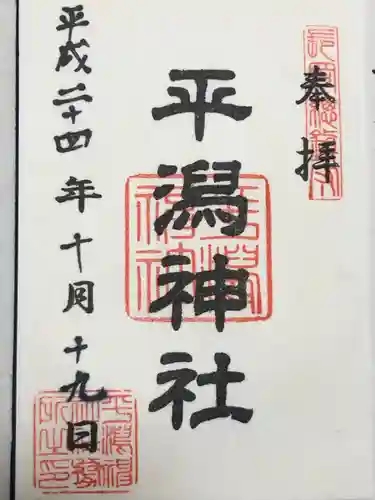 奉拝
平潟神社
平成二十四年十月十九日